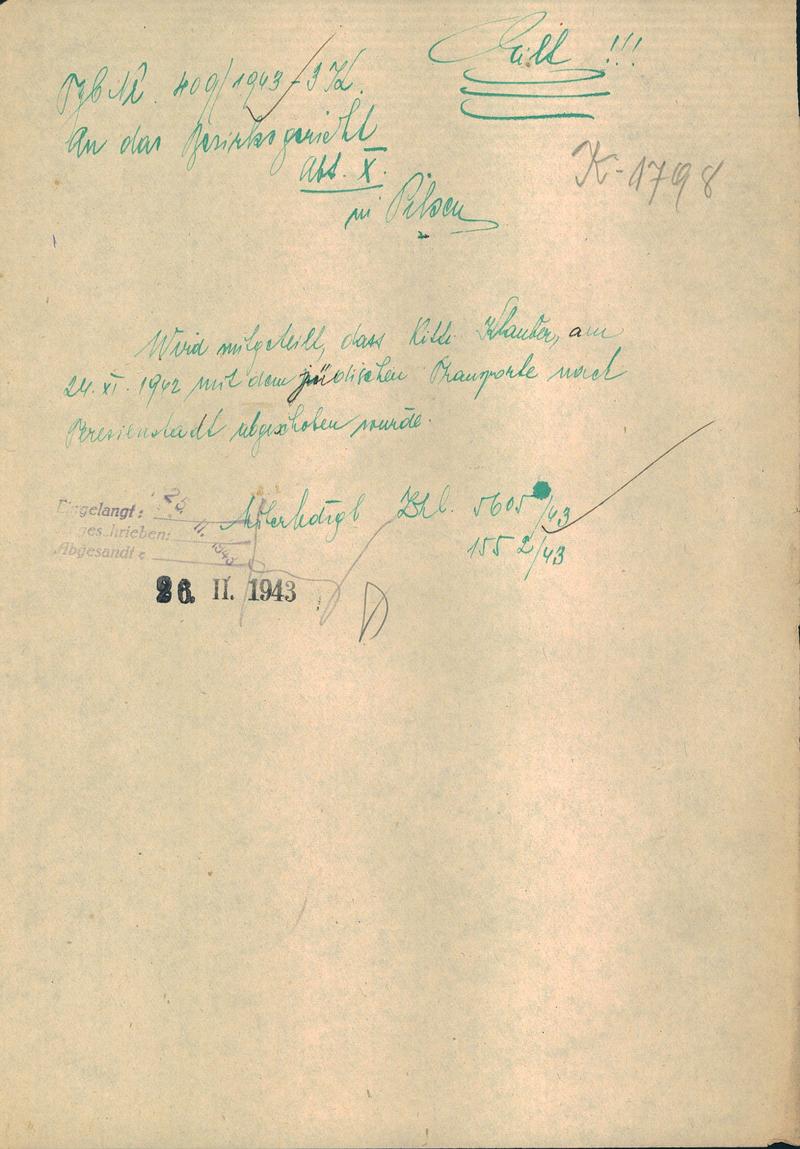 Eilt !!!
TgbNr. 409/1943-3 K.
An das Bezirksgericht
Abt. X.
in Pilsen
K-1798
Wird mitgeteilt, dass Kitti Klauber, am
24. XI. 1942 mit dem jüdischen Transporte nach
Teresienstadt abgeschoben wurde.
Eingelangt: 25. II. 1943
geschrieben:
Abgesandt:
Zhl. 5605/43
1552/43
26. II. 1943